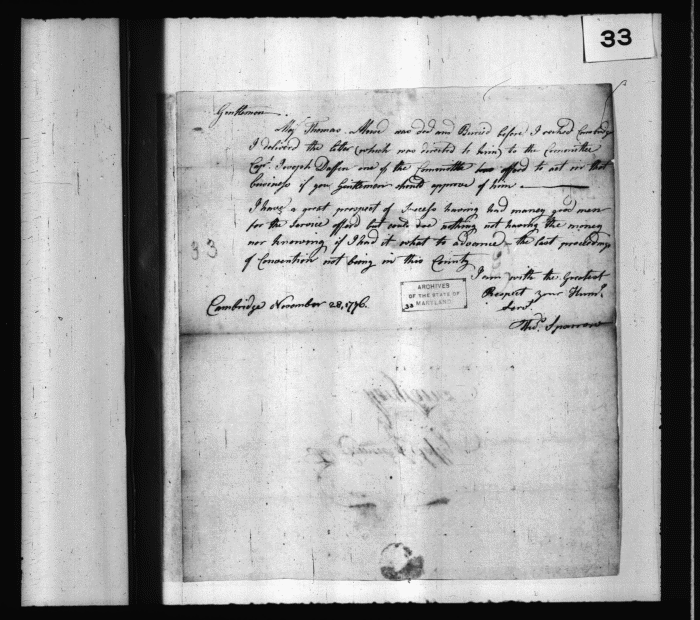 33
Gentlemen
Majr Thomas Muse was ded and Buried before I reched Cambridge
I deliverd the letter (which was directed to him) to the Committee
Capt. Joseph Daffin one of the Committee has offerd to act in that
business if you Gentlemen should approve of him
I have a great prospect of Sucess having had maney good men
for the Service offerd but could doe nothing not having the money
nor knowing if I had it what to advance - the last proceedings
of Convention not being in this County
33
I am with the Greatest
Respect your Huml.
Servt.
ARCHIVES
OF THE STATE OF
MARYLAND
33
Cambridge November 28, 1776.
Thos. Sparrow